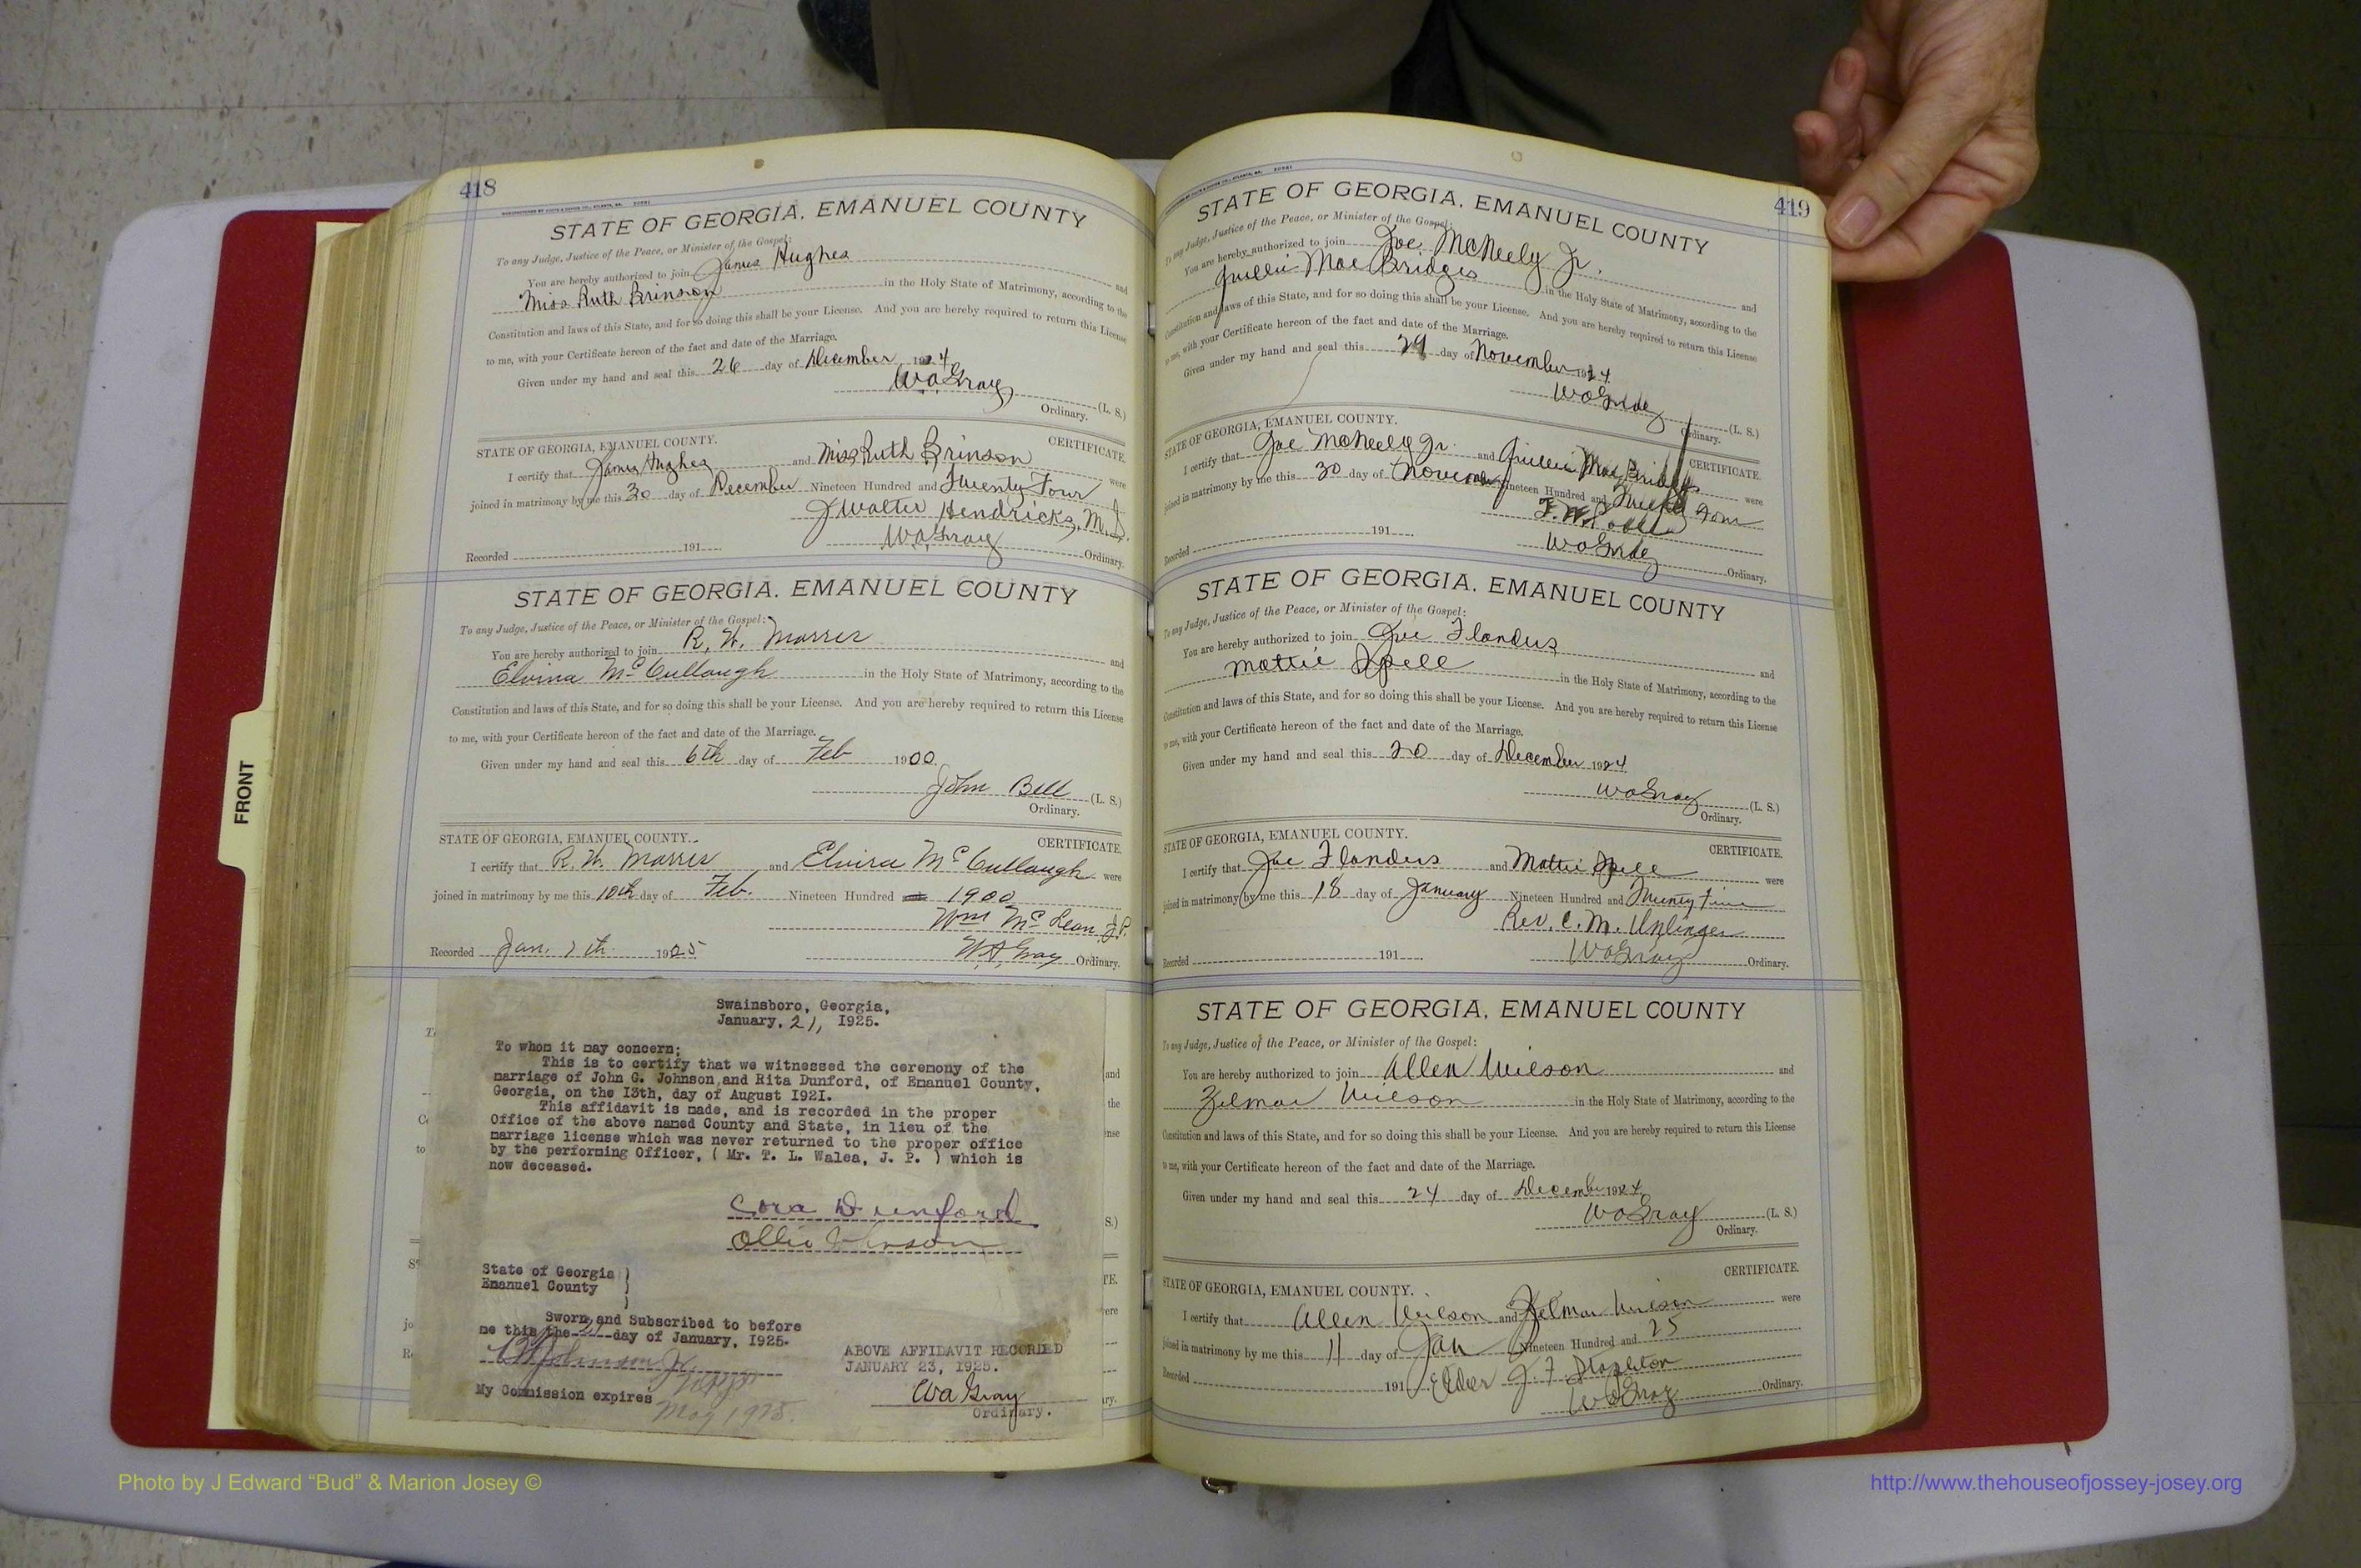 418
STATE OF GEORGIA, EMANUEL COUNTY
To any Judge, Justice of the Peace, or Minister of the Gospel:
You are hereby authorized to join James Hughes and
Miss Ruth Brinson in the Holy State of Matrimony, according to the
Constitution and laws of this State, and for so doing this shall be your License. And you are hereby required to return this License
to me, with your Certificate hereon of the fact and date of the Marriage.
Given under my hand and seal this 26 day of December 1924
W A Gray (L. S.)
Ordinary.
STATE OF GEORGIA, EMANUEL COUNTY. CERTIFICATE.
I certify that James Hughes and Miss Ruth Brinson were
joined in matrimony by me this 30 day of December Nineteen Hundred and Twenty Four
J Walter Hendricks, M.G.
Recorded 191 W.A. Gray Ordinary.
STATE OF GEORGIA, EMANUEL COUNTY
To any Judge, Justice of the Peace, or Minister of the Gospel:
You are hereby authorized to join R. H. Morris and
Elvina McCullough in the Holy State of Matrimony, according to the
Constitution and laws of this State, and for so doing this shall be your License. And you are hereby required to return this License
to me, with your Certificate hereon of the fact and date of the Marriage.
Given under my hand and seal this 6th day of Feb 1900
John Bell (L. S.)
Ordinary.
STATE OF GEORGIA, EMANUEL COUNTY. CERTIFICATE.
I certify that R. H. Morris and Elvira McCullough were
joined in matrimony by me this 10th day of Feb. Nineteen Hundred 1900
Wm McLean J.P.
Recorded Jan. 7th 1925 W.A. Gray Ordinary.
Swainsboro, Georgia,
January, 21, 1925.
To whom it may concern;
This is to certify that we witnessed the ceremony of the
marriage of John G. Johnson and Rita Dunford, of Emanuel County,
Georgia, on the 13th, day of August 1921.
This affidavit is made, and is recorded in the proper
Office of the above named County and State, in lieu of the
marriage license which was never returned to the proper office
by the performing Officer, ( Mr. T. L. Walea, J. P. ) which is
now deceased.
Cora Dunford
Ollie Johnson
State of Georgia )
Emanuel County )
)
Sworn and Subscribed to before
me this the 21 day of January, 1925.
Johnson Jr.
My Commission expires May 1925.
ABOVE AFFIDAVIT RECORDED
JANUARY 23, 1925.
W A Gray
Ordinary.
419
STATE OF GEORGIA, EMANUEL COUNTY
To any Judge, Justice of the Peace, or Minister of the Gospel:
You are hereby authorized to join Joe McNeely Jr. and
Mae Bridges in the Holy State of Matrimony, according to the
Constitution and laws of this State, and for so doing this shall be your License. And you are hereby required to return this License
to me, with your Certificate hereon of the fact and date of the Marriage.
Given under my hand and seal this 29 day of November 1924
W A Gray (L. S.)
Ordinary.
STATE OF GEORGIA, EMANUEL COUNTY. CERTIFICATE.
I certify that Joe McNeely Jr. and Mae Bridges were
joined in matrimony by me this 30 day of November Nineteen Hundred and Twenty Four
Recorded 191 W A Gray Ordinary.
STATE OF GEORGIA, EMANUEL COUNTY
To any Judge, Justice of the Peace, or Minister of the Gospel:
You are hereby authorized to join Joe Flanders and
Mattie Spell in the Holy State of Matrimony, according to the
Constitution and laws of this State, and for so doing this shall be your License. And you are hereby required to return this License
to me, with your Certificate hereon of the fact and date of the Marriage.
Given under my hand and seal this 20 day of December 1924
W A Gray (L. S.)
Ordinary.
STATE OF GEORGIA, EMANUEL COUNTY. CERTIFICATE.
I certify that Joe Flanders and Mattie Spell were
joined in matrimony by me this 18 day of January Nineteen Hundred and Twenty Five
Rev. C. M.
Recorded 191 W A Gray Ordinary.
STATE OF GEORGIA, EMANUEL COUNTY
To any Judge, Justice of the Peace, or Minister of the Gospel:
You are hereby authorized to join Allen Wilson and
Zelmar Wilson in the Holy State of Matrimony, according to the
Constitution and laws of this State, and for so doing this shall be your License. And you are hereby required to return this License
to me, with your Certificate hereon of the fact and date of the Marriage.
Given under my hand and seal this 24 day of December 1924
W A Gray (L. S.)
Ordinary.
STATE OF GEORGIA, EMANUEL COUNTY. CERTIFICATE.
I certify that Allen Wilson and Zelmar Wilson were
joined in matrimony by me this 11 day of Jan Nineteen Hundred and 25
Recorded 191 Elder J. F. Stapleton
W A Gray Ordinary.
FRONT
Photo by J Edward "Bud" & Marion Josey ©
http://www.thehouseofjossey-josey.org